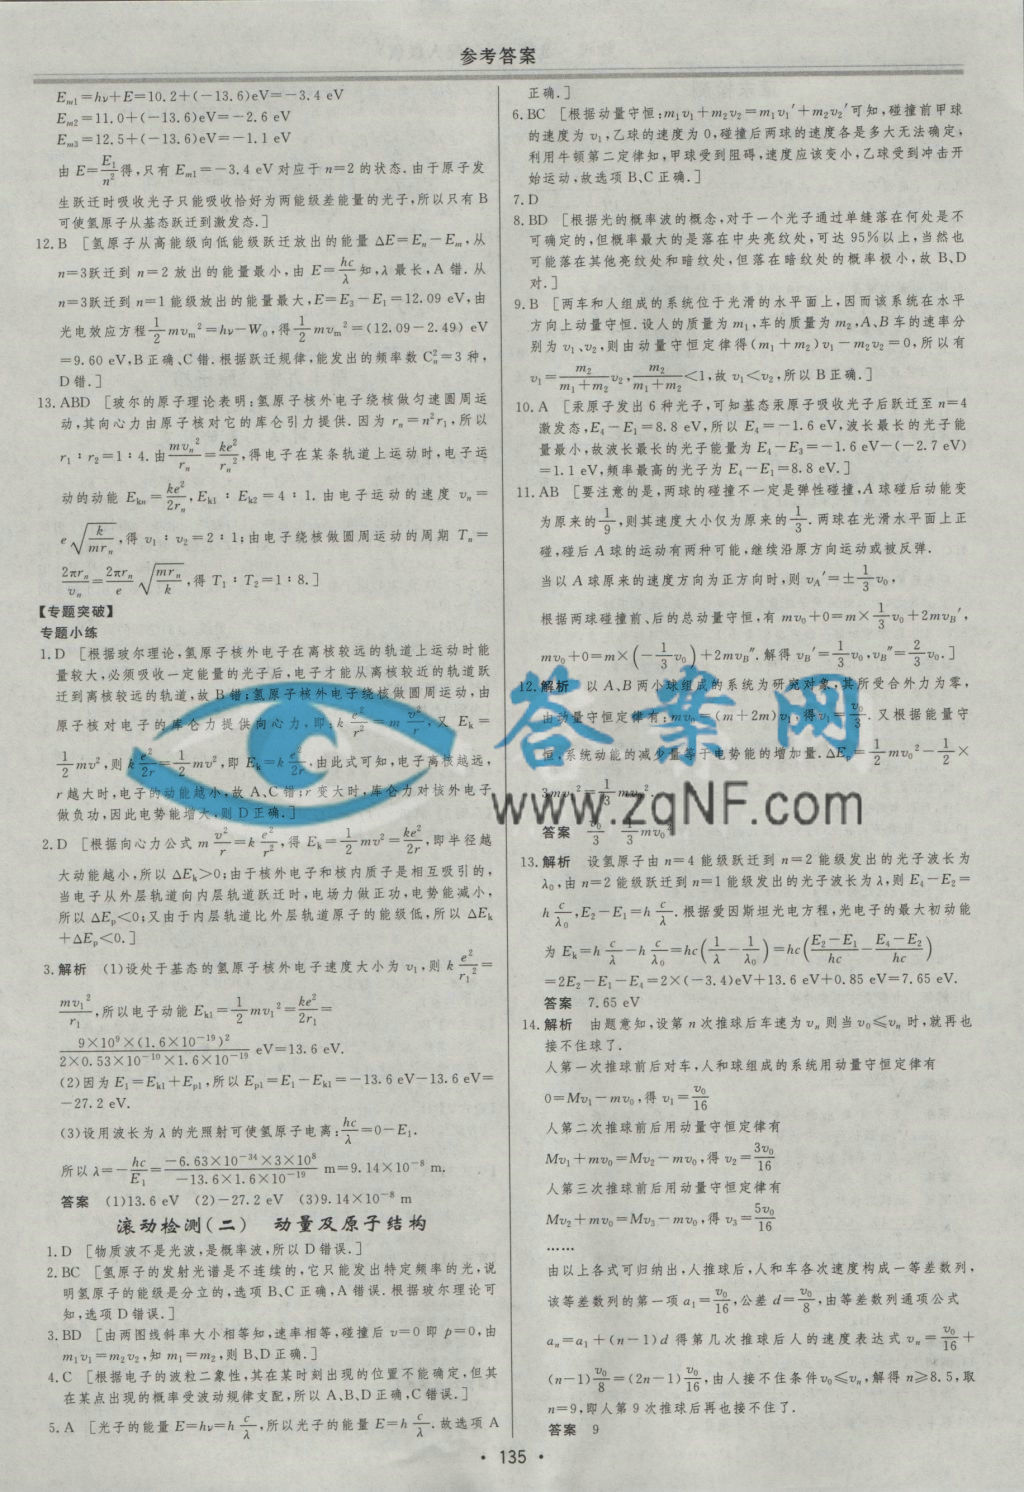 参考答案
E_{m1}=hν+E=10.2+(-13.6)eV=-3.4 eV
E_{m2}=11.0+(-13.6)eV=-2.6 eV
E_{m3}=12.5+(-13.6)eV=-1.1 eV
由 E=E₁/n²得,只有 E_{m1}=-3.4 eV 对应于 n=2 的状态.由于原子发
生跃迁时吸收光子只能吸收恰好为两能级差能量的光子,所以只有 B
可使氢原子从基态跃迁到激发态.]
12.B [氢原子从高能级向低能级跃迁放出的能量 ΔE=Eₙ-Eₘ,从
n=3跃迁到 n=2 放出的能量最小,由 E=hc/λ知,λ最长,A 错.从
n=3跃迁到 n=1 能级放出的能量最大,E=E₃-E₁=12.09 eV,由
光电效应方程1/2 mvₘ²=hν-W₀,得1/2 mvₘ²=(12.09-2.49) eV
=9.60 eV,B正确、C错.根据跃迁规律,能发出的频率数 C²ₙ=3 种,
D错.]
13.ABD [玻尔的原子理论表明:氢原子核外电子绕核做匀速圆周运
动,其向心力由原子核对它的库仑引力提供.因为 rₙ=n²r₁,所以
r₁∶r₂=1∶4.由mvₙ²/rₙ=ke²/rₙ²,得电子在某条轨道上运动时,电子运
动的动能 E_{kn}=ke²/2rₙ,E_{k1}∶E_{k2}=4∶1.由电子运动的速度 vₙ=
e√(k/mrₙ),得 v₁∶v₂=2∶1;由电子绕核做圆周运动的周期 Tₙ=
2πrₙ/vₙ=2πrₙ/e √(mrₙ/k),得 T₁∶T₂=1∶8.]
【专题突破】
专题小练
1.D [根据玻尔理论,氢原子核外电子在离核较远的轨道上运动时能
量较大,必须吸收一定能量的光子后,电子才能从离核较近的轨道跃
迁到离核较远的轨道,故 B 错;氢原子核外电子绕核做圆周运动,由
原子核对电子的库仑力提供向心力,即:k e²/r²=m v²/r,又 E_k=
1/2 mv²,则k e²/2r=1/2 mv²,即 E_k=k e²/2r,由此式可知,电子离核越远,
r 越大时,电子的动能越小,故 A、C 错;r 变大时,库仑力对核外电子
做负功,因此电势能增大,则 D 正确.]
2.D [根据向心力公式 m v²/r=k e²/r²,得 E_k=1/2 mv²=ke²/2r,即半径越
大动能越小,所以 ΔE_k>0;由于核外电子和核内质子是相互吸引的,
当电子从外层轨道向内层轨道跃迁时,电场力做正功,电势能减小,
所以 ΔE_p<0;又由于内层轨道比外层轨道原子的能级低,所以 ΔE_k
+ΔE_p<0.]
3.解析 (1)设处于基态的氢原子核外电子速度大小为 v₁,则 k e²/r₁²=
mv₁²/r₁,所以电子动能 E_{k1}=1/2 mv₁²=ke²/2r₁=
9×10⁹×(1.6×10⁻¹⁹)²/2×0.53×10⁻¹⁰×1.6×10⁻¹⁹ eV=13.6 eV.
(2)因为 E₁=E_{k1}+E_{p1},所以 E_{p1}=E₁-E_{k1}=-13.6 eV-13.6 eV=
-27.2 eV.
(3)设用波长为 λ 的光照射可使氢原子电离:hc/λ=0-E₁.
所以 λ=-hc/E₁=-6.63×10⁻³⁴×3×10⁸/-13.6×1.6×10⁻¹⁹ m=9.14×10⁻⁸ m.
答案 (1)13.6 eV (2)-27.2 eV (3)9.14×10⁻⁸ m
滚动检测(二) 动量及原子结构
1.D [物质波不是光波,是概率波,所以 D错误.]
2.BC [氢原子的发射光谱是不连续的,它只能发出特定频率的光,说
明氢原子的能级是分立的,选项 B、C 正确,A 错误.根据玻尔理论可
知,选项 D 错误.]
3.BD [由两图线斜率大小相等知,速率相等,碰撞后 v=0 即 p=0,由
m₁v₁=m₂v₂,知 m₁=m₂,则 B、D正确.]
4.C [根据电子的波粒二象性,其在某时刻出现的位置不能确定,但其
在某点出现的概率受波动规律支配,所以 A、B、D正确,C错误.]
5.A [光子的能量 E=hν=h c/λ,所以光子的能量 E=h c/λ.故选项 A
正确.]
6.BC [根据动量守恒:m₁v₁+m₂v₂=m₁v₁′+m₂v₂′可知,碰撞前甲球
的速度为 v₁,乙球的速度为 0,碰撞后两球的速度各是多大无法确定,
利用牛顿第二定律知,甲球受到阻碍,速度应该变小,乙球受到冲击开
始运动,故选项 B、C正确.]
7.D
8.BD [根据光的概率波的概念,对于一个光子通过单缝落在何处是不
可确定的,但概率最大的是落在中央亮纹处,可达 95%以上,当然也
可能落在其他亮纹处和暗纹处,但落在暗纹处的概率极小,故 B、D
对.]
9.B [两车和人组成的系统位于光滑的水平面上,因而该系统在水平
方向上动量守恒.设人的质量为 m₁,车的质量为 m₂,A、B车的速率分
别为 v₁、v₂,则由动量守恒定律得(m₁+m₂)v₁-m₂v₂=0,所以有
v₁=m₂/m₁+m₂ v₂,m₂/m₁+m₂<1,故 v₁<v₂,所以 B正确.]
10.A [汞原子发出 6 种光子,可知基态汞原子吸收光子后跃迁至 n=4
激发态,E₄-E₁=8.8 eV,所以 E₄=-1.6 eV,波长最长的光子能
量最小,故波长最长的光子能量为 E₄-E₃=-1.6 eV-(-2.7 eV)
=1.1 eV,频率最高的光子为 E₄-E₁=8.8 eV.]
11.AB [要注意的是,两球的碰撞不一定是弹性碰撞,A 球碰后动能变
为原来的1/9,则其速度大小仅为原来的1/3.两球在光滑水平面上正
碰,碰后 A 球的运动有两种可能,继续沿原方向运动或被反弹.
当以 A 球原来的速度方向为正方向时,则 v_A′=±1/3 v₀,
根据两球碰撞前、后的总动量守恒,有 mv₀+0=m×1/3 v₀+2mv_B′,
mv₀+0=m×(-1/3 v₀)+2mv_B″.解得 v_B′=1/3 v₀,v_B″=2/3 v₀.]
12.解析 以 A、B两小球组成的系统为研究对象,其所受合外力为零,
由动量守恒定律有:mv₀=(m+2m)v₁,得v₁=v₀/3.又根据能量守
恒,系统动能的减少量等于电势能的增加量.ΔE_p=1/2 mv₀²-1/2×
3mv₁²=1/3 mv₀².
答案 v₀/3 1/3 mv₀²
13.解析 设氢原子由 n=4 能级跃迁到 n=2 能级发出的光子波长为
λ₀,由 n=2 能级跃迁到 n=1 能级发出的光子波长为 λ,则 E₄-E₂=
h c/λ₀,E₂-E₁=h c/λ.根据爱因斯坦光电方程,光电子的最大初动能
为 E_k=h c/λ-h c/λ₀=hc(1/λ-1/λ₀)=hc(E₂-E₁/hc-E₄-E₂/hc)
=2E₂-E₁-E₄=2×(-3.4)eV+13.6 eV+0.85 eV=7.65 eV.
答案 7.65 eV
14.解析 由题意知,设第 n 次推球后车速为 vₙ 则当 v₀≤vₙ 时,就再也
接不住球了.
人第一次推球前后对车,人和球组成的系统用动量守恒定律有
0=Mv₁-mv₀,得 v₁=v₀/16
人第二次推球前后用动量守恒定律有
Mv₁+mv₀=Mv₂-mv₀,得 v₂=3v₀/16
人第三次推球前后用动量守恒定律有
Mv₂+mv₀=Mv₃-mv₀,得 v₃=5v₀/16
……
由以上各式可归纳出,人推球后,人和车各次速度构成一等差数列,
该等差数列的第一项 a₁=v₀/16,公差 d=v₀/8,由等差数列通项公式
aₙ=a₁+(n-1)d 得第几次推球后人的速度表达式 vₙ=v₀/16+
(n-1)v₀/8=(2n-1)v₀/16,由人接不住条件v₀≤vₙ,解得 n≥8.5,取
n=9,即人第 9 次推球后再也接不住了.
答案 9
答案网
www.zqNF.com
• 135 •